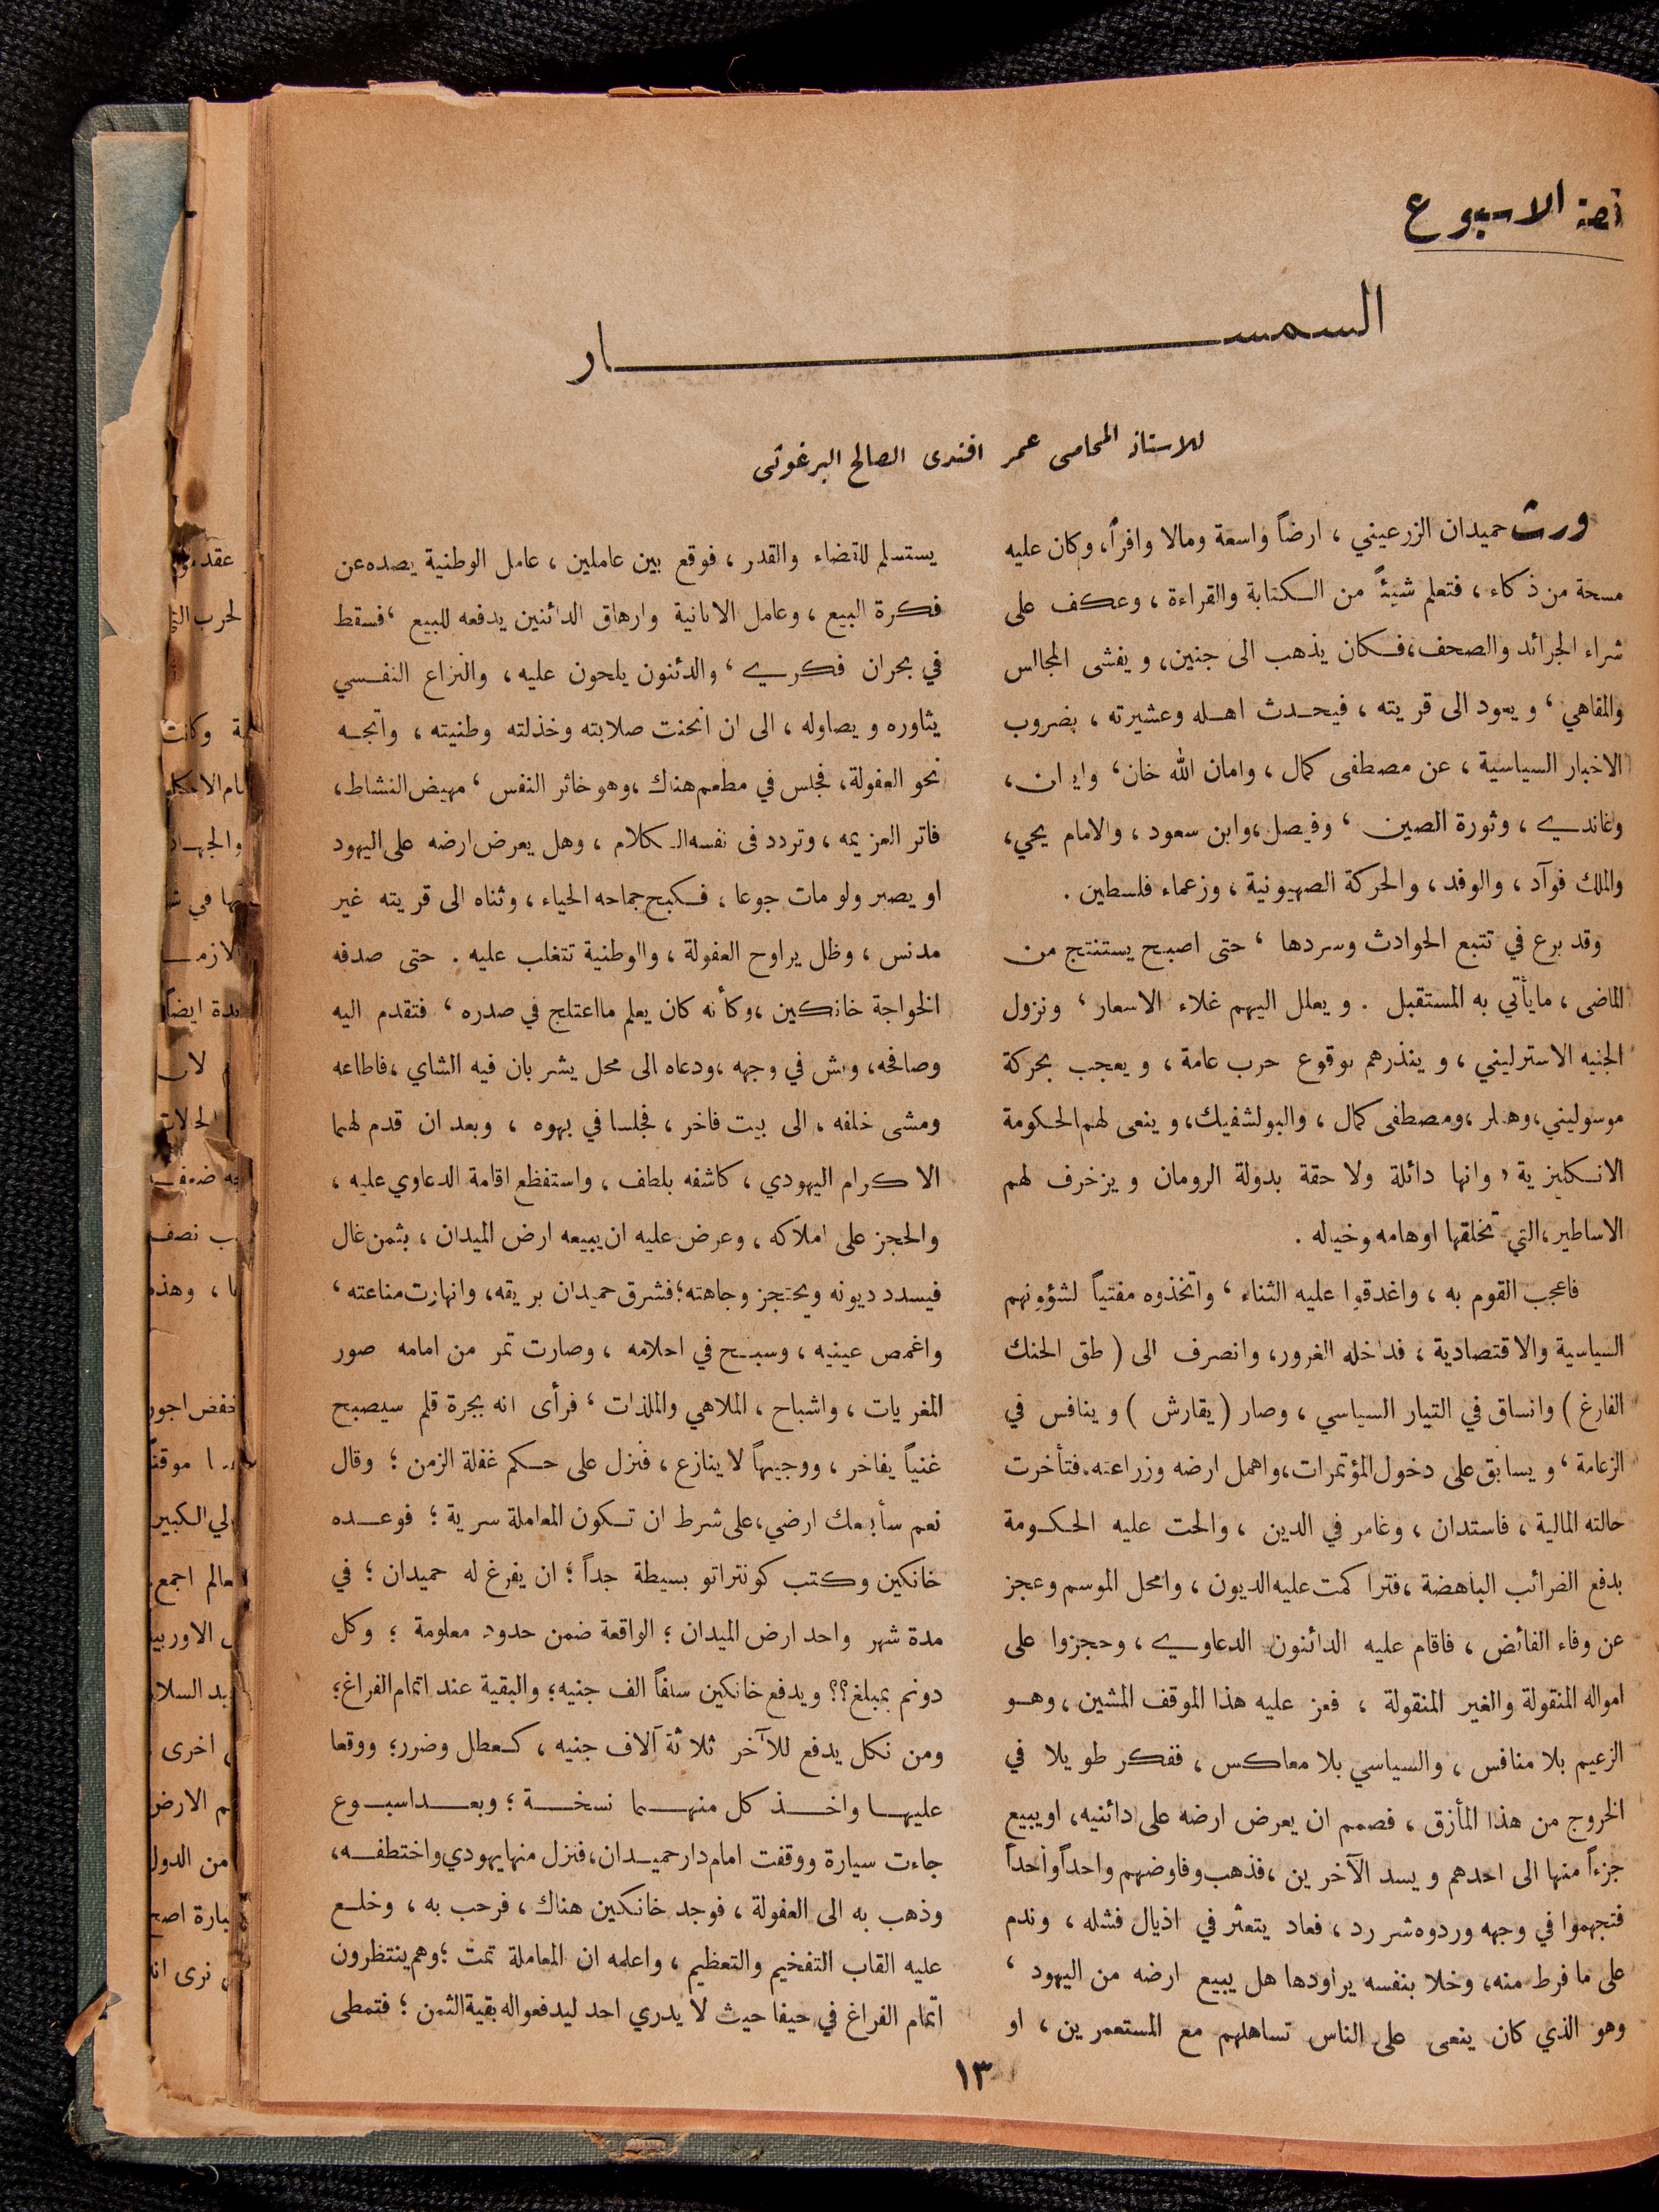 قصة الاسبوع
السمسار
للاستاذ المحامى عمر افندى الصالح البرغوثى
ورث حميدان الزرعيني ، ارضاً واسعة ومالا وافراً، وكان عليه
مسحة من ذكاء ، فتعلم شيئاً من الكتابة والقراءة ، وعكف على
شراء الجرائد والصحف، فكان يذهب الى جنين، ويغشى المجالس
والمقاهي ، ويعود الى قريته ، فيحدث اهله وعشيرته ، بضروب
الاخبار السياسية ، عن مصطفى كمال ، وامان الله خان ، وايران ،
وغاندي ، وثورة الصين ، وفيصل، وابن سعود ، والامام يحي ،
والملك فوآد ، والوفد ، والحركة الصهيونية ، وزعماء فلسطين .
وقد برع في تتبع الحوادث وسردها ، حتى اصبح يستنتج من
الماضى ، مايأتي به المستقبل . ويعلل اليهم غلاء الاسعار ، ونزول
الجنيه الاسترليني ، وينذرهم بوقوع حرب عامة ، ويعجب بحركة
موسوليني، وهتلر، ومصطفى كمال ، والبولشفيك، وينعى لهم الحكومة
الانكليزية ، وانها دائلة ولاحقة بدولة الرومان ويزخرف لهم
الاساطير، التي تخلقها اوهامه وخياله .
فاعجب القوم به ، واغدقوا عليه الثناء ، واتخذوه مفتياً لشؤونهم
السياسية والاقتصادية ، فداخله الغرور، وانصرف الى ( طق الحنك
الفارغ ) وانساق في التيار السياسي ، وصار ( يقارش ) وينافس في
الزعامة ، ويسابق على دخول المؤتمرات، واهمل ارضه وزراعته، فتأخرت
حالته المالية ، فاستدان ، وغامر في الدين ، والحت عليه الحكومة
بدفع الضرائب الباهضة ، فتراكمت عليه الديون ، وامحل الموسم وعجز
عن وفاء الفائض ، فاقام عليه الدائنون الدعاوي ، وحجزوا على
امواله المنقولة والغير المنقولة ، فعز عليه هذا الموقف المشين ، وهو
الزعيم بلا منافس ، والسياسي بلا معاكس ، ففكر طويلا في
الخروج من هذا المأزق ، فصمم ان يعرض ارضه على دائنيه، او يبيع
جزءاً منها الى احدهم ويسد الآخرين ، فذهب وفاوضهم واحداً واحداً
فتجهموا في وجهه وردوه شر رد ، فعاد يتعثر في اذيال فشله ، وندم
على ما فرط منه، وخلا بنفسه يراودها هل يبيع ارضه من اليهود ،
وهو الذي كان ينعى على الناس تساهلهم مع المستعمرين ، او
يستسلم للقضاء والقدر ، فوقع بين عاملين ، عامل الوطنية يصده عن
فكرة البيع ، وعامل الانانية وارهاق الدائنين يدفعه للبيع ، فسقط
في بحران فكري ، والدئنون يلحون عليه ، والنزاع النفسي
يثاوره ويصاوله ، الى ان انحنت صلابته وخذلته وطنيته ، واتجه
نحو العفولة، فجلس في مطعم هناك ، وهو خائر النفس ، مهيض النشاط ،
فاتر العزيمه ، وتردد فى نفسه الكلام ، وهل يعرض ارضه على اليهود
او يصبر ولو مات جوعا ، فكبح جماحه الحياء ، وثناه الى قريته غير
مدنس ، وظل يراوح العفولة ، والوطنية تتغلب عليه . حتى صدفه
الخواجة خانكين ، وكأنه كان يعلم مااعتلج في صدره ، فتقدم اليه
وصافحه، وبش في وجهه ، ودعاه الى محل يشربان فيه الشاي ، فاطاعه
ومشى خلفه ، الى بيت فاخر ، فجلسا في بهوه ، وبعد ان قدم لهما
الاكرام اليهودي ، كاشفه بلطف ، واستفظع اقامة الدعاوي عليه ،
والحجز على املاكه ، وعرض عليه ان يبيعه ارض الميدان ، بثمن غال
فيسدد ديونه ويحتجز وجاهته؛ فشرق حميدان بريقه، وانهارت مناعته ،
واغمص عينيه ، وسبح في احلامه ، وصارت تمر من امامه صور
المغريات ، واشباح ، الملاهي والملذات ، فرأى انه بجرة قلم سيصبح
غنياً يفاخر ، ووجيهاً لا ينازع ، فنزل على حكم غفلة الزمن ؛ وقال
نعم سأبيعك ارضي، على شرط ان تكون المعاملة سرية ؛ فوعده
خانكين وكتب كونتراتو بسيطة جداً ؛ ان يفرغ له حميدان ؛ في
مدة شهر واحد ارض الميدان ؛ الواقعة ضمن حدود معلومة ؛ وكل
دونم بمبلغ؟؟ ويدفع خانكين سلفاً الف جنيه؛ والبقية عند اتمام الفراغ؛
ومن نكل يدفع للآخر ثلاثة آلاف جنيه ، كعطل وضرر؛ ووقعا
عليها واخذ كل منهما نسخة ؛ وبعد اسبوع
جاءت سيارة ووقفت امام دار حميدان، فنزل منها يهودي واختطفه ،
وذهب به الى العفولة ، فوجد خانكين هناك ، فرحب به ، وخلع
عليه القاب التفخيم والتعظيم ، واعلمه ان المعاملة تمت ؛ وهم ينتظرون
اتمام الفراغ في حيفا حيث لا يدري احد ليدفعواله بقية الثمن ؛ فتمطى
١٣
عقد
وكانت
والجهاد
ايضاً
لان
الحالات
نصف
، وهذه
اجور
الكبير
اجمع
اخرى
الارض
من الدول
نرى